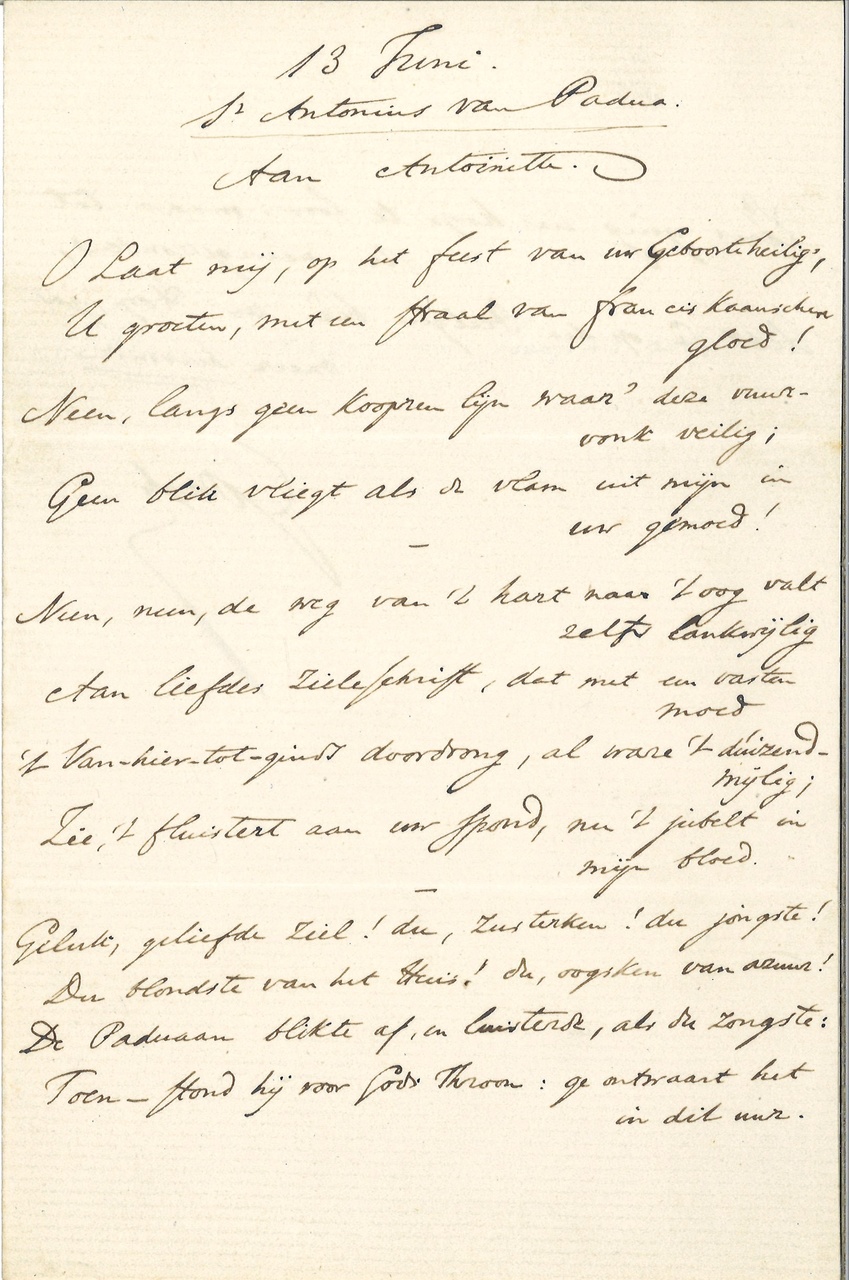 13 Juni.
St Antonius van Padua.
Aan Antoinette.
O Laat mij, op het feest van uw Geboorteheilig',
U groeten, met een straal van franciskaanschen
gloed!
Neen, langs geen koopren lijn waar' deze vuur-
vonk veilig;
Geen blik vliegt als de vlam uit mijn in
uw gemoed!
–
Neen, neen, de weg van 't hart naar 't oog valt
zelfs lankwijlig
Aan liefdes zieleschrift, dat met een vasten
moed
't Van-hier-tot-ginds doordrong, al ware 't duizend-
mijlig;
Zie, 't fluistert aan uw spond, nu 't jubelt in
mijn bloed.
–
Geluk, geliefde ziel! du, zusterken! du jongste!
Du blondste van het Huis! du, oogsken van azuur!
De Paduaan blikte af, en luisterde, als du zongste:
Toen – stond hij voor Gods Throon: ge ontwaart het
in dit uur.